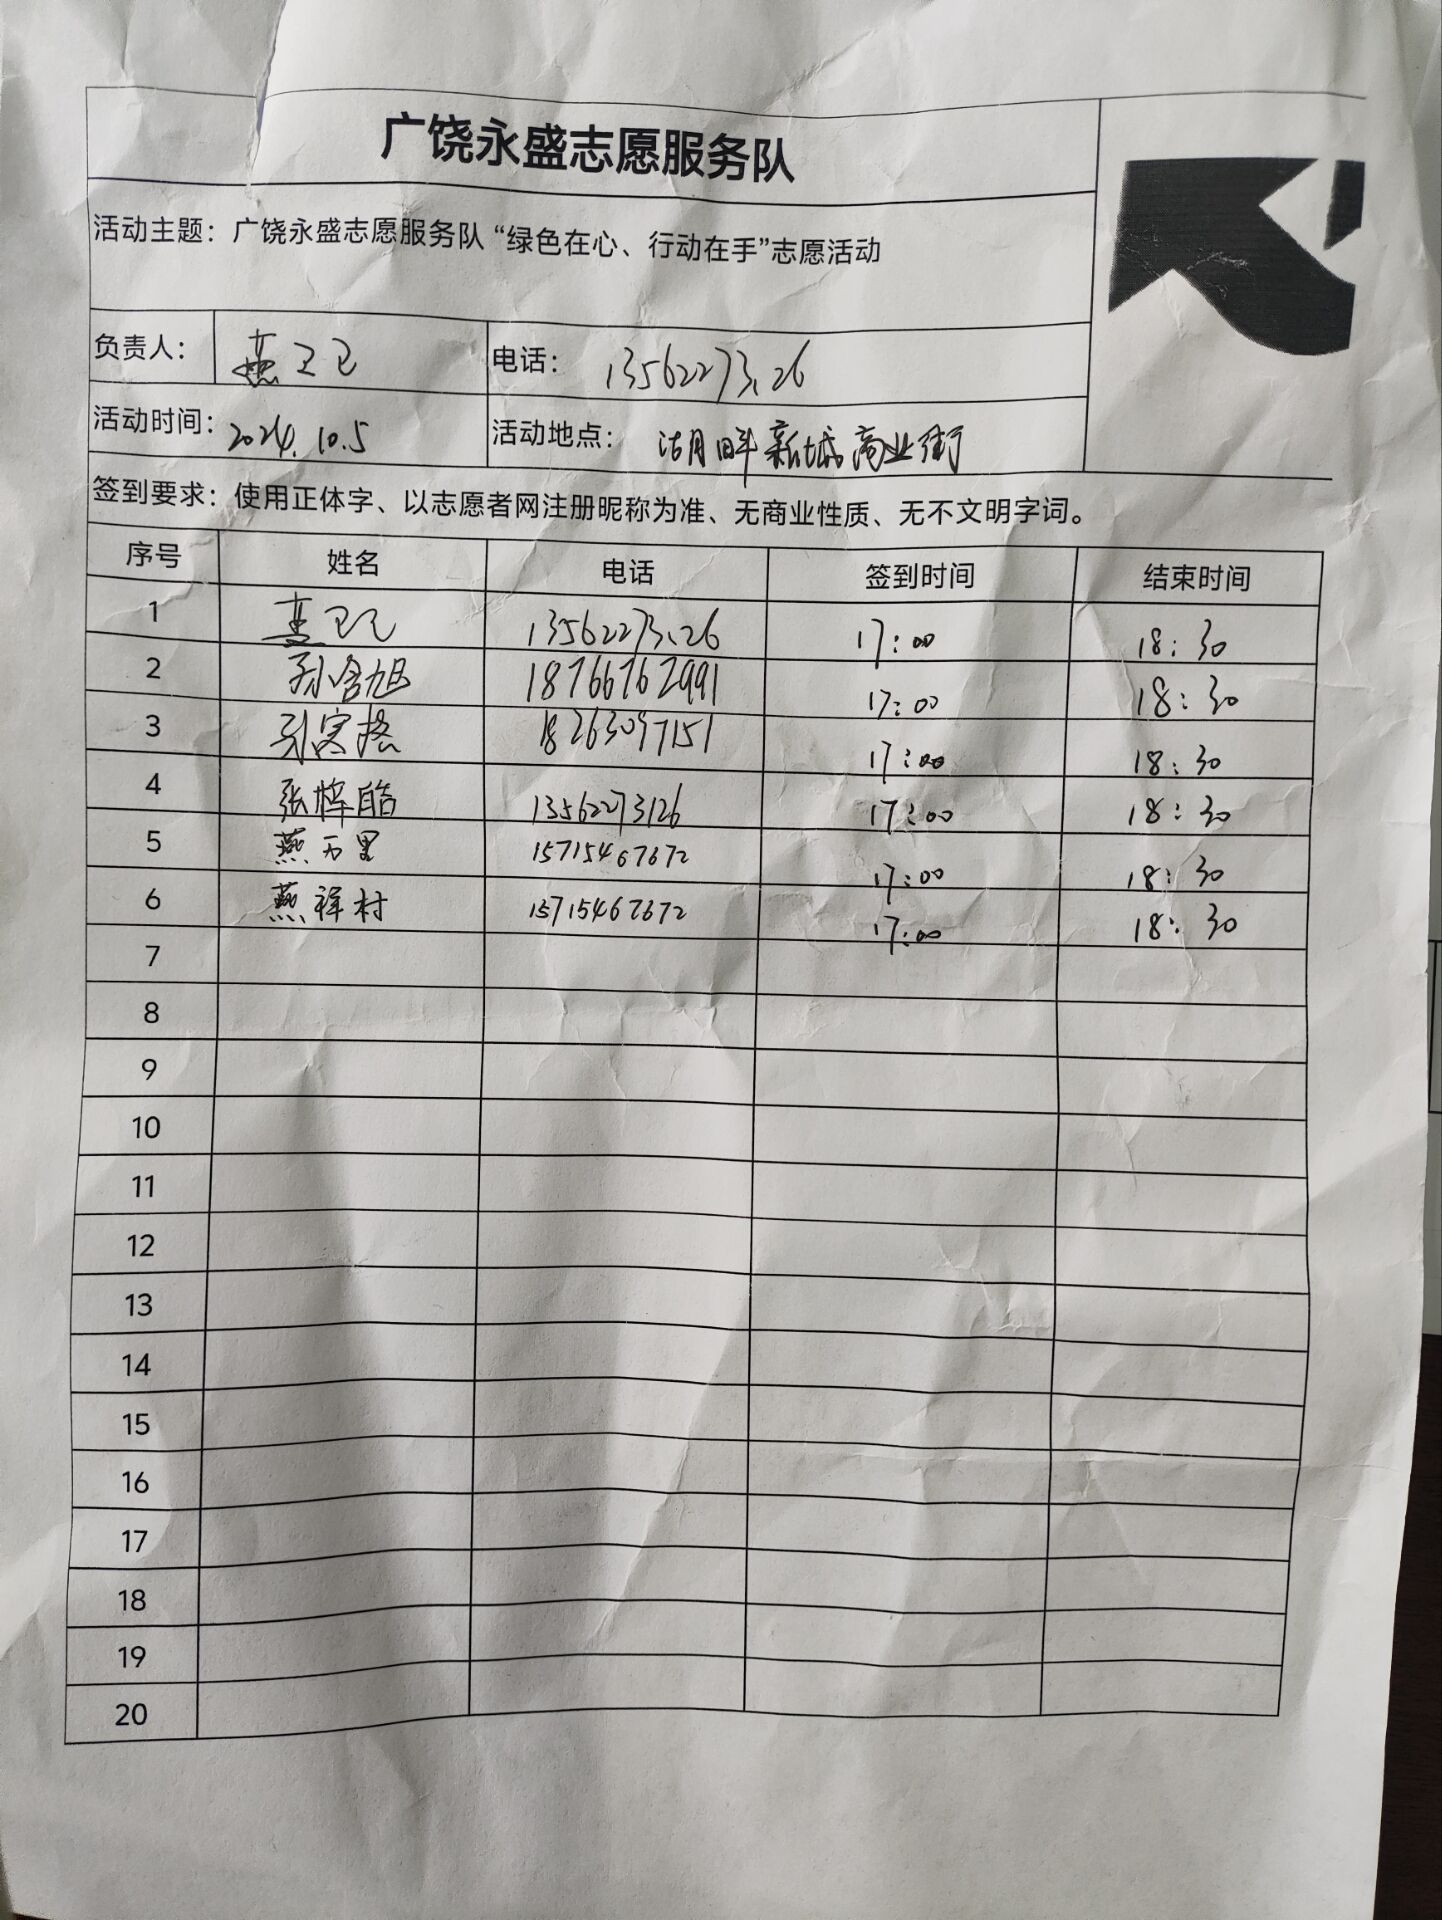 广饶永盛志愿服务队
活动主题：广饶永盛志愿服务队“绿色在心、行动在手”志愿活动
负责人： 燕卫卫 电话： 13562273126
活动时间：2024.10.5 活动地点： 湖畔新城商业街
签到要求：使用正体字、以志愿者网注册昵称为准、无商业性质、无不文明字词。
序号 姓名 电话 签到时间 结束时间
1 13562273126 17:00 18:30
2 孙含旭 18766762991 17:00 18:30
3 18263097151 17:00 18:30
4 张梓皓 13562273126 17:00 18:30
5 燕万里 15715467672 17:00 18:30
6 燕祥村 15715467672 17:00 18:30
7
8
9
10
11
12
13
14
15
16
17
18
19
20